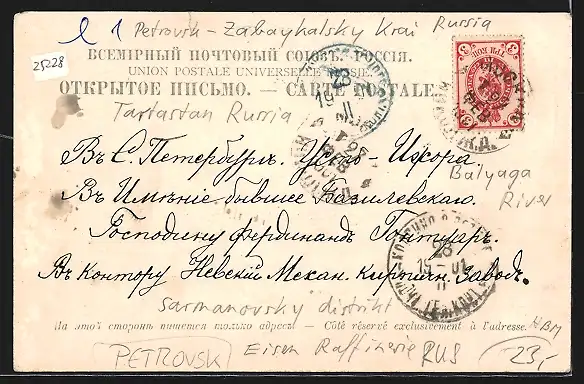 l 1 Petrovsk - Zabaykalsky Krai Russia
ВСЕМІРНЫЙ ПОЧТОВЫЙ СОЮЗЪ. РОССІЯ.
25228
UNION POSTALE UNIVERSELLE. RUSSIE.
ОТКРЫТОЕ ПИСЬМО. — CARTE POSTALE.
28
19
II
Tartastan Russia
Въ С. Петербургъ. Усть-Ижора
Balyaga
River
Въ Имѣніе бывшее Базилевскаго.
Господину Фердинанд Гонтуаръ.
28
19-01
II
Въ Контору Невскій Механ. Кирпичн. Заводъ.
Sarmanovsky distrikt
На этой сторонѣ пишется только адресъ. — Côté réservé exclusivement à l'adresse.
HBM
PETROVSK Eisen Raffinerie RUS 23,-